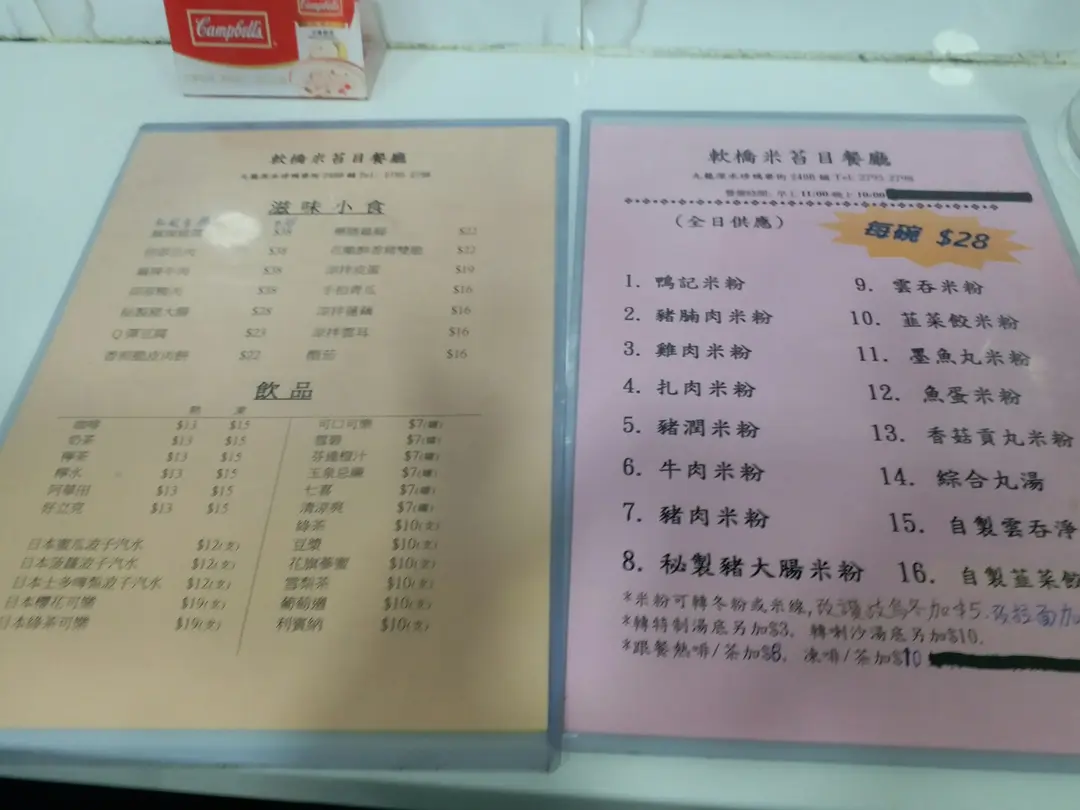 Campbell's
軟橋米苔目餐廳
滋味小食
$38
$22
$38
$22
$38
涼拌皮蛋 $19
$38
手拍青瓜 $16
秘製豬大腸 $28
涼拌蓮藕 $16
Q彈豆腐 $23
涼拌雲耳 $16
香煎脆皮肉餅 $22
$16
飲品
熱 凍
咖啡 $13 $15
奶茶 $13 $15
檸茶 $13 $15
檸水 $13 $15
阿華田 $13 $15
好立克 $13 $15
日本蜜瓜波子汽水 $12(支)
日本菠蘿波子汽水 $12(支)
日本士多啤梨波子汽水 $12(支)
日本櫻花可樂 $19(支)
日本綠茶可樂 $19(支)
可口可樂 $7(罐)
雪碧 $7(罐)
芬達橙汁 $7(罐)
玉泉忌廉 $7(罐)
七喜 $7(罐)
清涼爽 $7(罐)
綠茶 $10(支)
豆漿 $10(支)
花旗蔘蜜 $10(支)
雪梨茶 $10(支)
葡萄適 $10(支)
利賓納 $10(支)
軟橋米苔目餐廳
Tel: 2795 2798
營業時間: 早上11:00-晚上10:00
(全日供應)
每碗 $28
1. 鴨記米粉
2. 豬腩肉米粉
3. 雞肉米粉
4. 扎肉米粉
5. 豬潤米粉
6. 牛肉米粉
7. 豬肉米粉
8. 秘製豬大腸米粉
9. 雲吞米粉
10. 韮菜餃米粉
11. 墨魚丸米粉
12. 魚蛋米粉
13. 香菇貢丸米粉
14. 綜合丸湯
15. 自製雲吞淨
16. 自製韮菜餃
*米粉可轉冬粉或米線, 烏冬加$5. 拉面加
*轉特制湯底另加$3, 轉喇沙湯底另加$10.
*跟餐熱啡/茶加$8, 凍啡/茶加$10